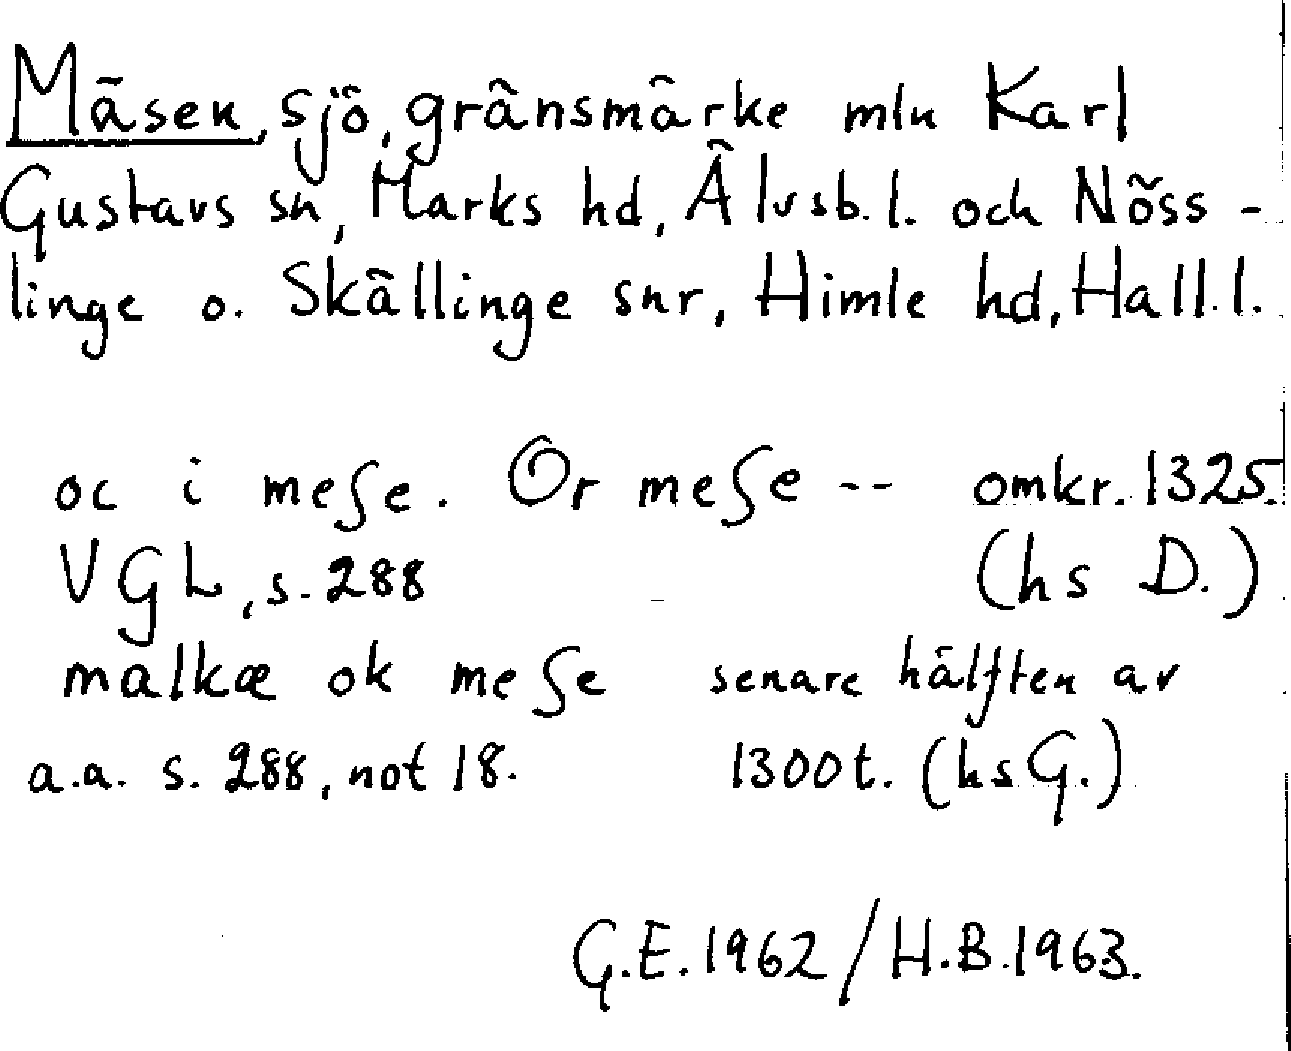 Mäsen, sjö, gränsmärke mln Karl
Gustavs sn, Marks hd, Älvsb. l. och Nöss-
linge o. Skällinge snr, Himle hd, Hall. l.
oc i meſe. Or meſe -- omkr. 1325.
VGL, s. 288 (hs D.)
malkæ ok meſe senare hälften av
a.a. s. 288, not 18. 1300t. (hs G.)
G.E. 1962 / H.B. 1963.